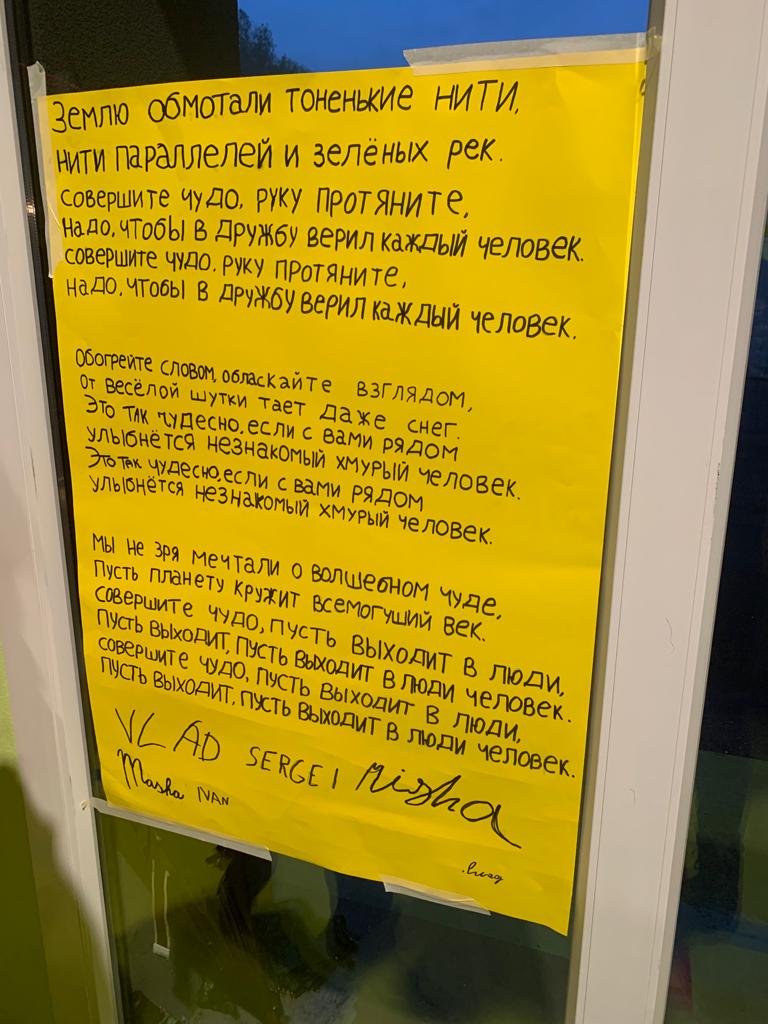 Землю обмотали тоненькие нити,
нити параллелей и зелёных рек.
совершите чудо, руку протяните,
надо, чтобы в дружбу верил каждый человек.
совершите чудо, руку протяните,
надо, чтобы в дружбу верил каждый человек.
Обогрейте словом, обласкайте взглядом,
От весёлой шутки тает даже снег.
Это так чудесно, если с вами рядом
улыбнётся незнакомый хмурый человек.
Это так чудесно, если с вами рядом
улыбнётся незнакомый хмурый человек.
Мы не зря мечтали о волшебном чуде,
Пусть планету кружит всемогуший век.
совершите чудо, пусть выходит в люди,
пусть выходит, пусть выходит в люди человек.
совершите чудо, пусть выходит в люди,
пусть выходит, пусть выходит в люди человек.
VLAD SERGEI Misha
Masha IVAN